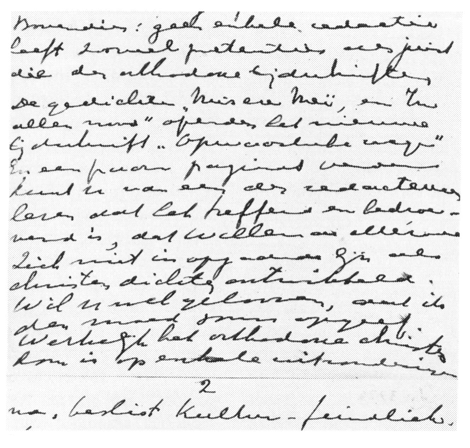 Bovendien: geen enkele redactie
heeft zoveel pretenties als juist
die der orthodoxe tijdschriften
De gedichten „Miserere Meï, en In
allen nood" openden het nieuwe
tijdschrift „Opwaartsche wegen"
En een paar pagina's verder
kunt u van een der redacteuren
lezen dat het treffend en bedroe-
vend is, dat Willem de Mérode
zich niet in opgaande lijn als
christen dichter ontwikkeld.
Wil u wel gelooven, dat ik
den moed soms opgeef.
Werkelijk het orthodoxe christen
dom is op enkele uitzonderingen
2
na, beslist Kultur-feindlich.